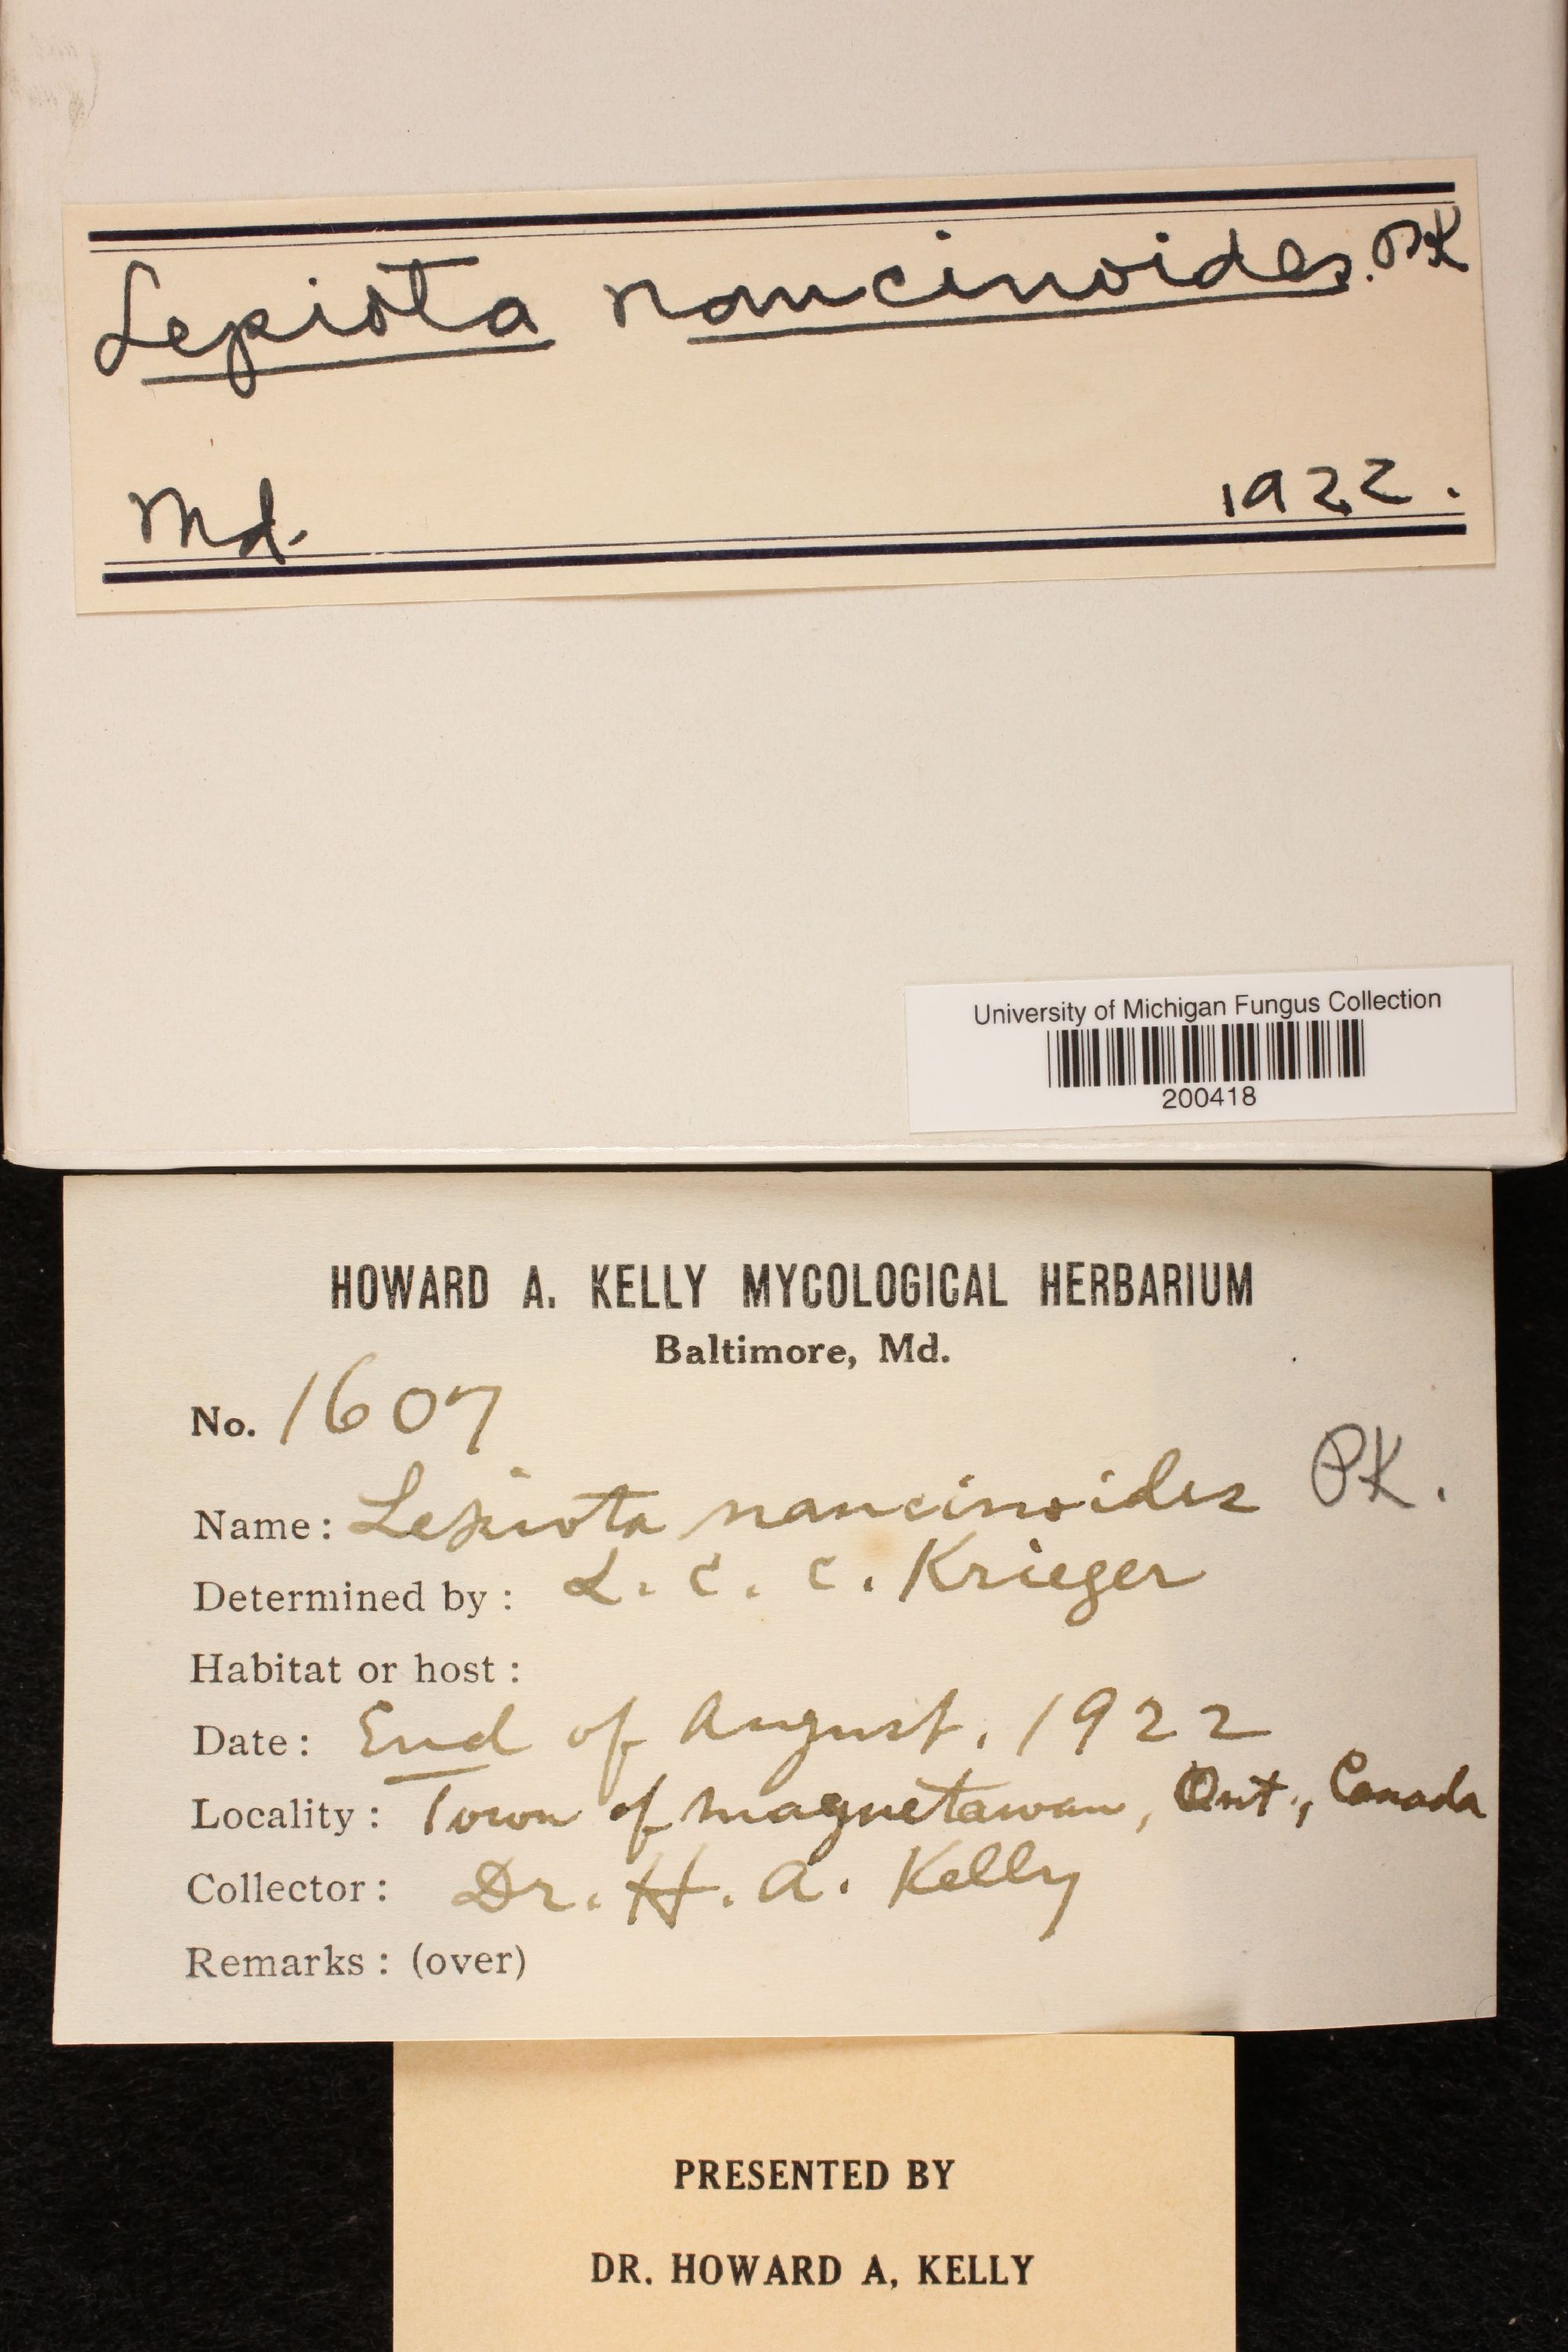 Lepiota naucinoides. PK
Md. 1922.
University of Michigan Fungus Collection
200418
HOWARD A. KELLY MYCOLOGICAL HERBARIUM
Baltimore, Md.
No. 1607
Name: Lepiota naucinoides PK.
Determined by: L. C. C. Krieger
Habitat or host:
Date: End of August, 1922
Locality: Town of Magnetawan, Ont., Canada
Collector: Dr. H. A. Kelly
Remarks: (over)
PRESENTED BY
DR. HOWARD A. KELLY